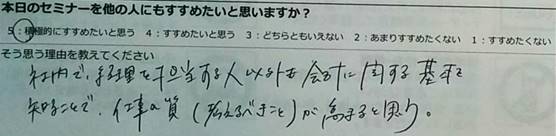 本日のセミナーを他の人にもすすめたいと思いますか?
5:積極的にすすめたいと思う 4:すすめたいと思う 3:どちらともいえない 2:あまりすすめたくない 1:すすめたくない
そう思う理由を教えてください
社内で、経理を担当する人以外も会計に関する基本を
知ることで、仕事の質(考えるべきこと)が高まると思う。